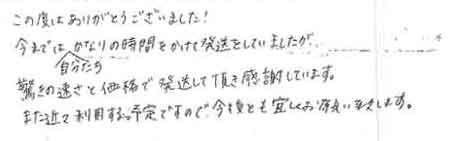 この度はありがとうございました!
今までは、自分たちかなりの時間をかけて発送をしていましたが、
驚きの速さと価格で発送して頂き感謝しています。
また近々利用する予定ですので、今後とも宜しくお願い致します。